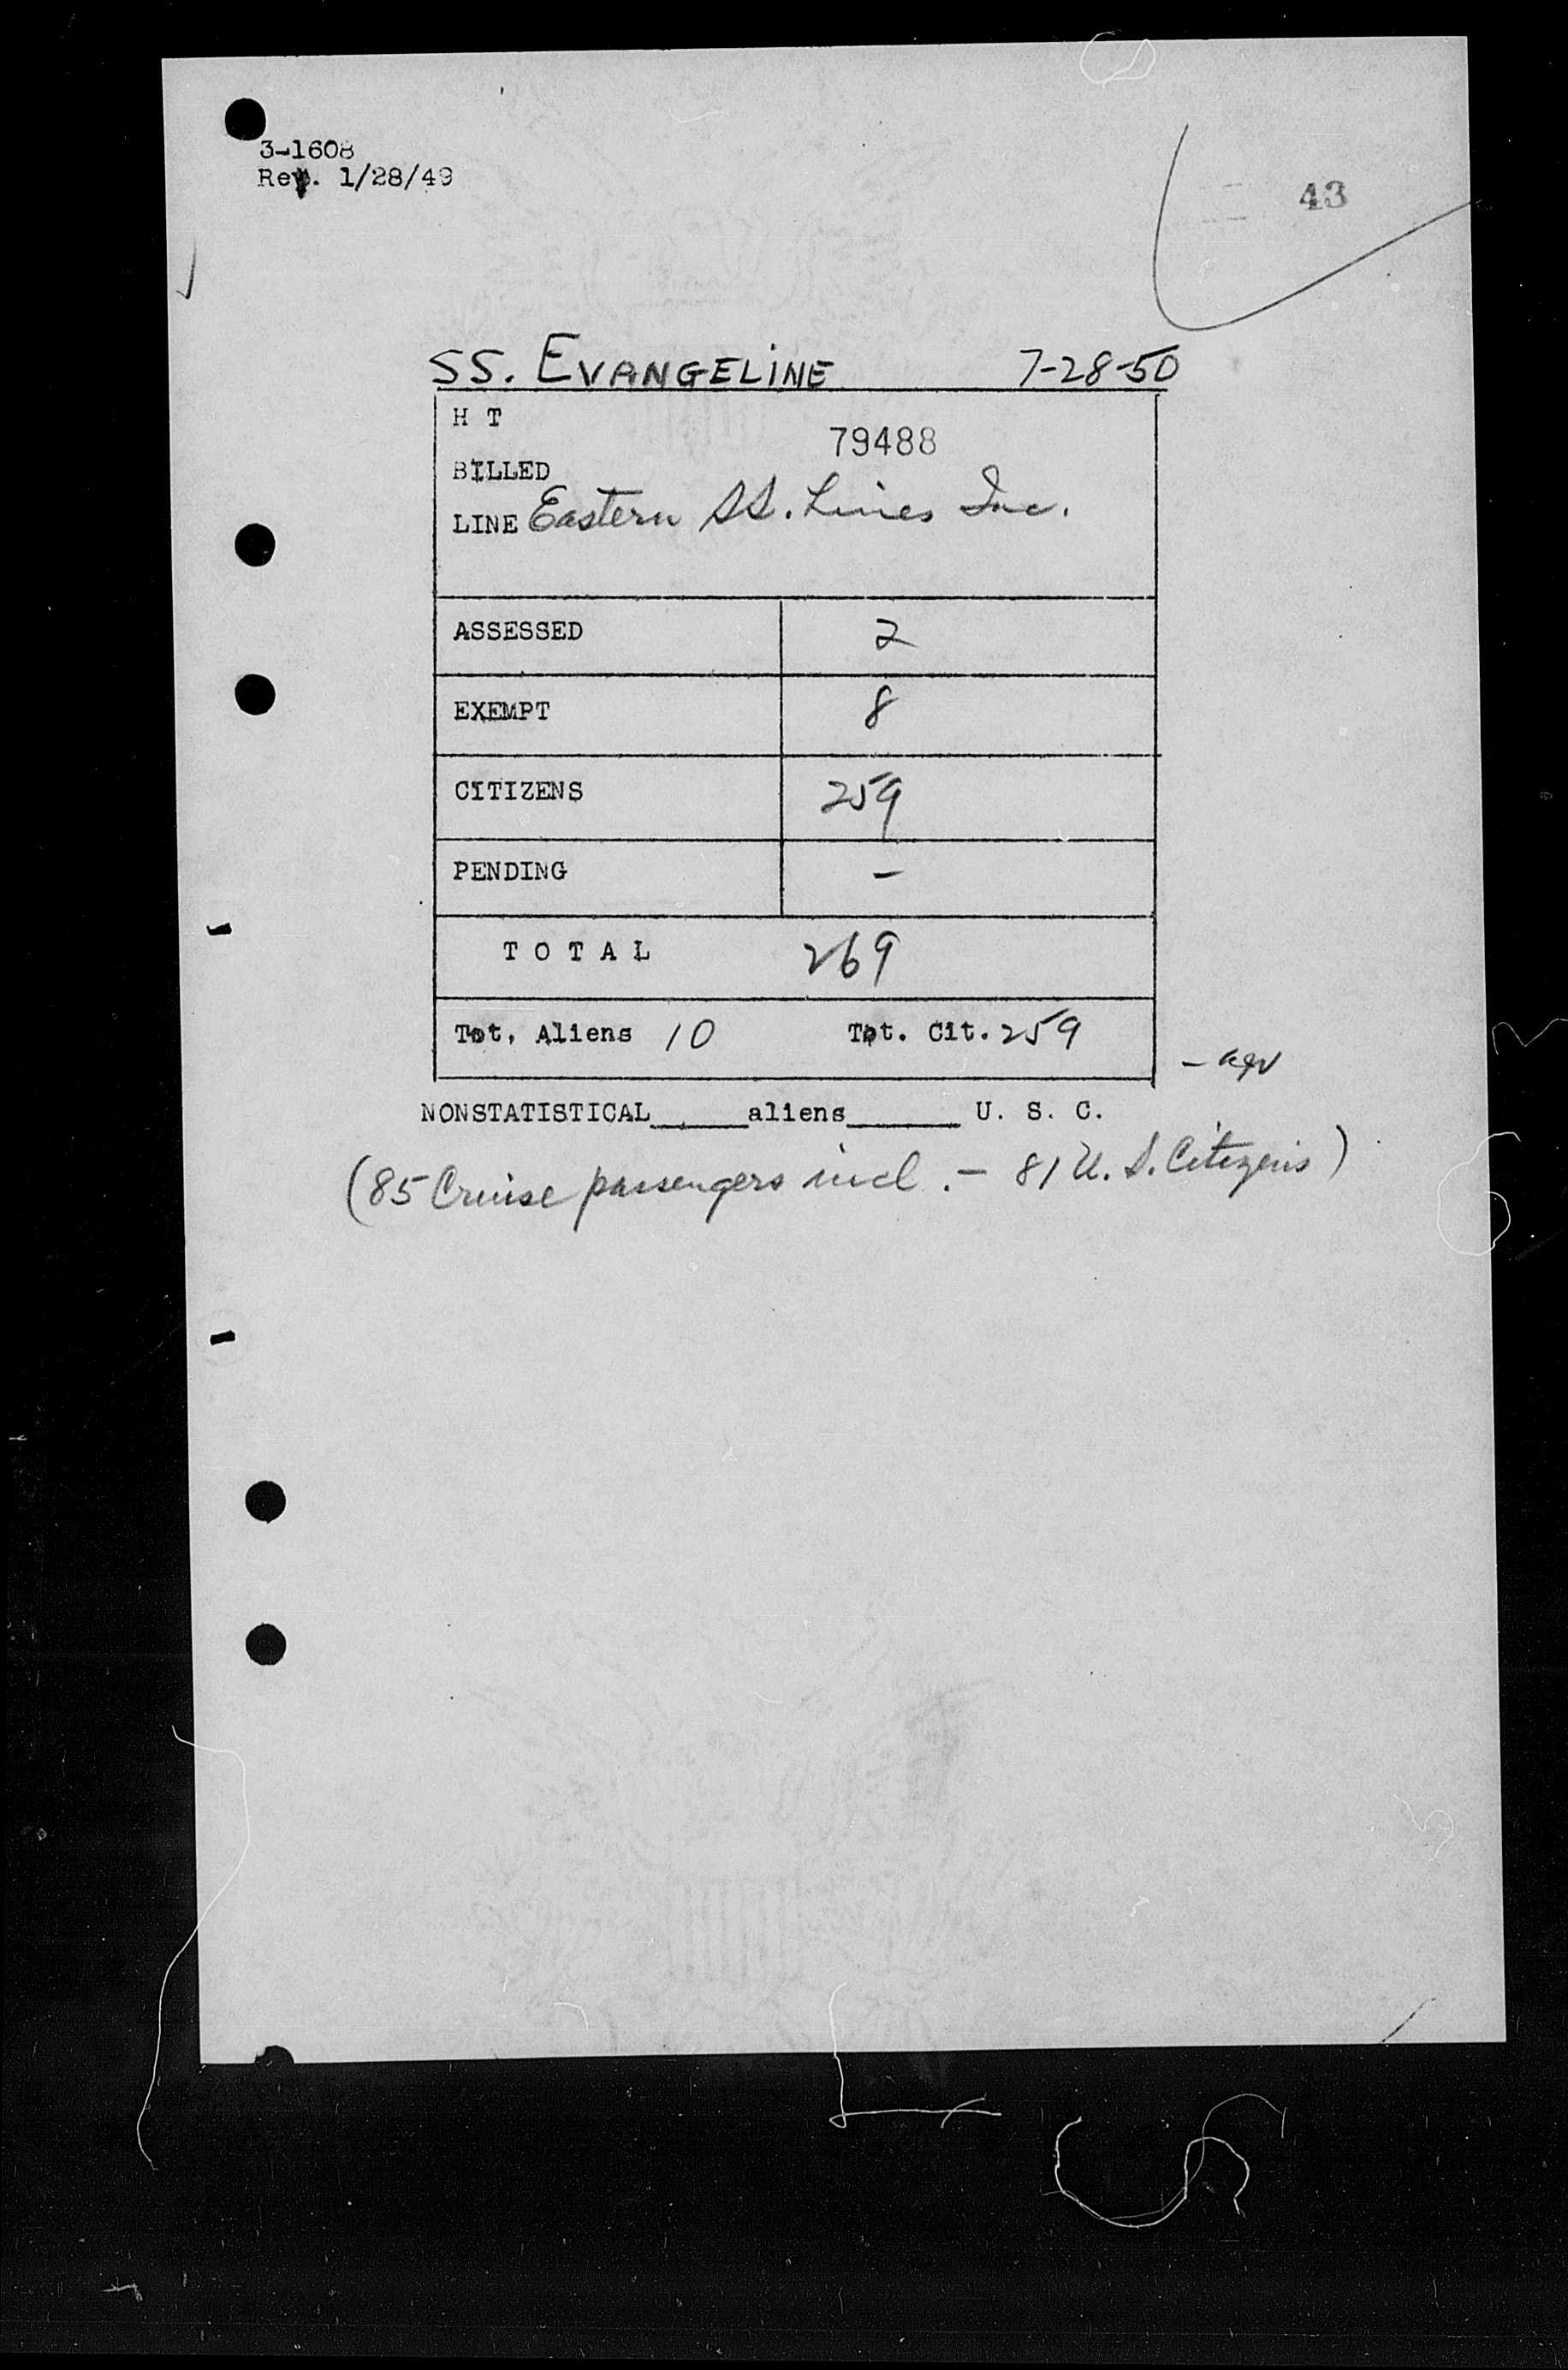 3-1608
Rev. 1/28/49
43
SS. EVANGELINE 7-28-50
H T
79488
BILLED
LINE Eastern SS. Lines Inc.
ASSESSED 2
EXEMPT 8
CITIZENS 259
PENDING -
T O T A L 269
Tot. Aliens 10 Tot. Cit. 259
NONSTATISTICAL_____aliens______ U. S. C.
(85 Cruise passengers incl. - 81 U. S. Citizens)